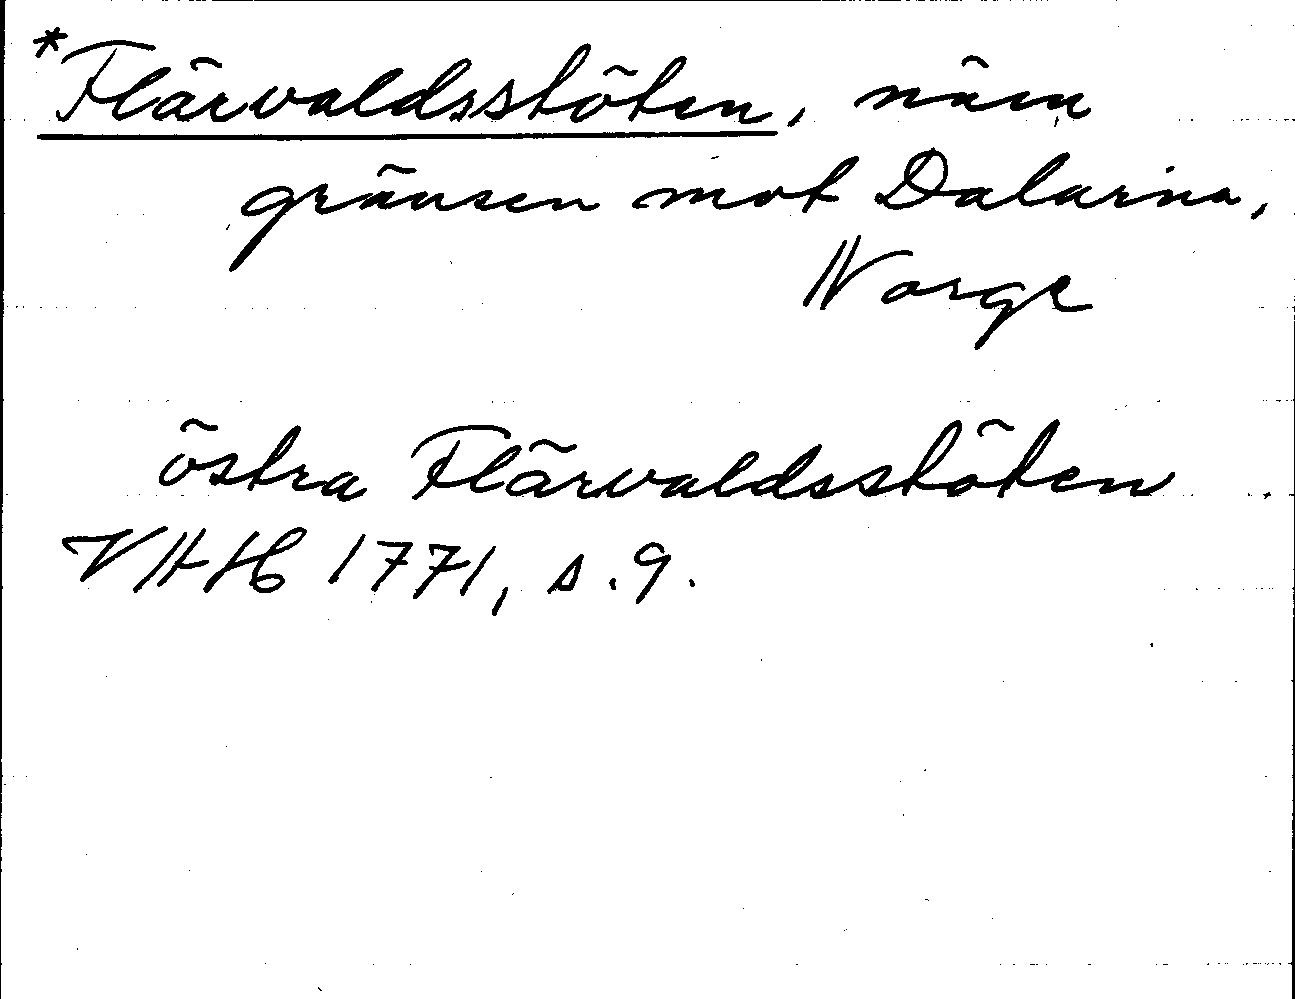 *Flärvaldsstöten, nära
gränsen mot Dalarna,
Norge
östra Flärvaldsstöten
VHH 1771, s.9.